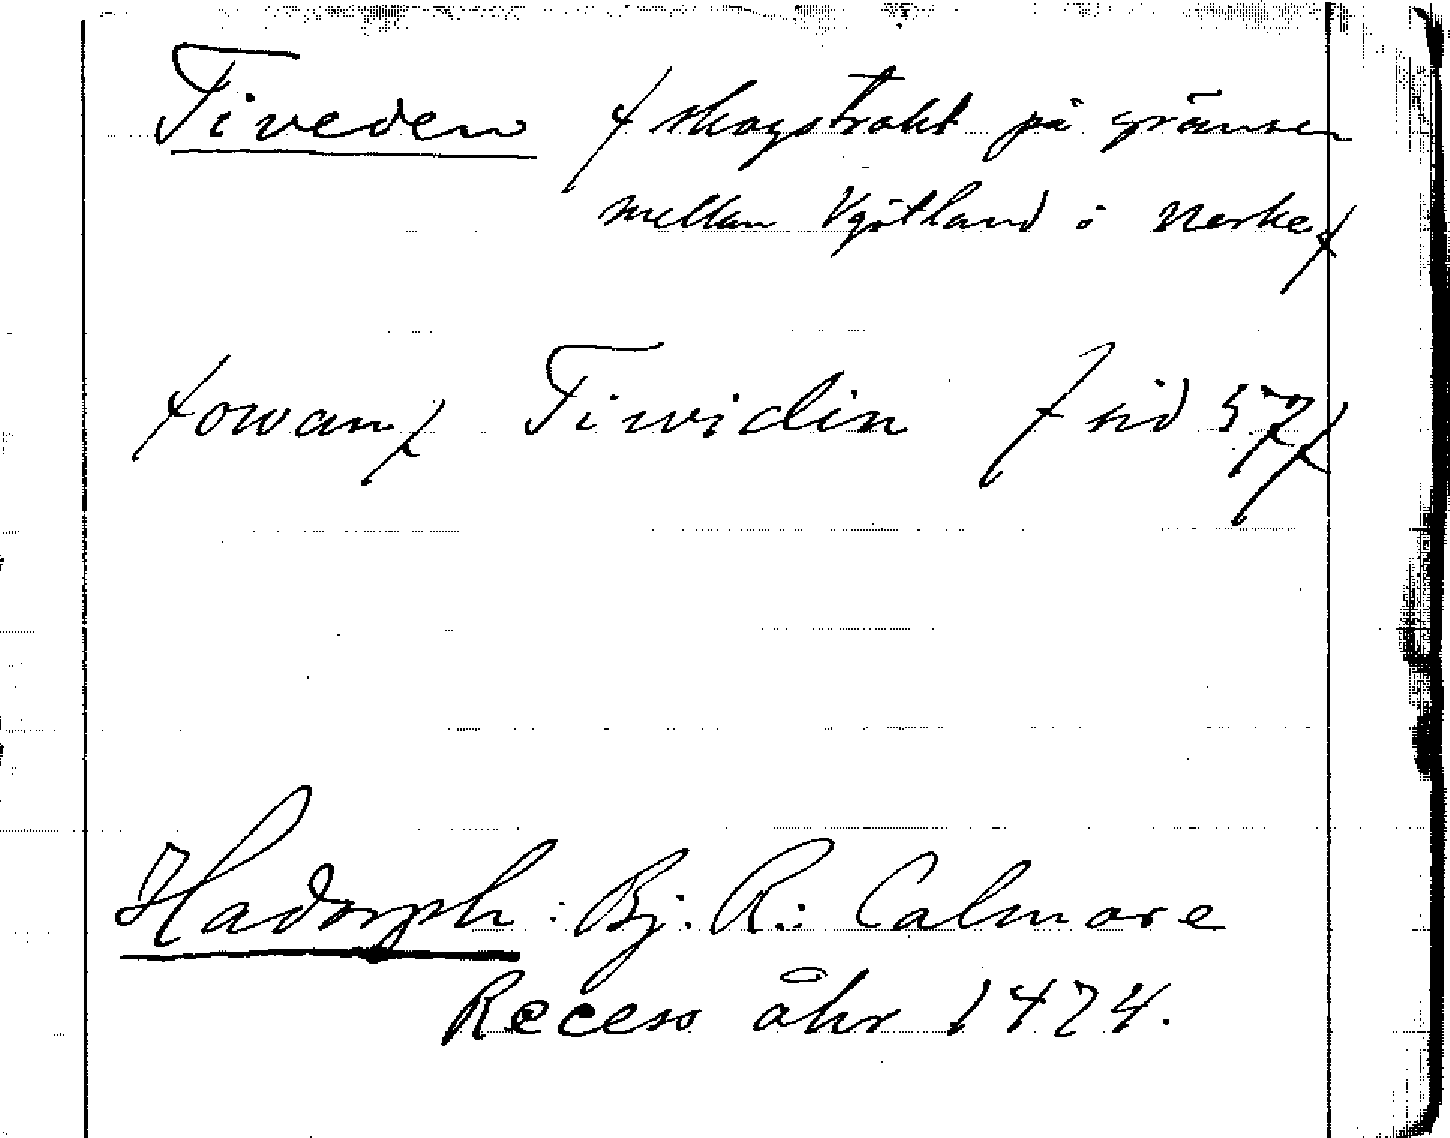 Tiveden / skogstrakt på gränsen
mellan Vgötland o Nerke /
/ owan / Tiwidin / sid 57 /
Hadorph: Bj. R.: Calmare
Recess åhr 1474.